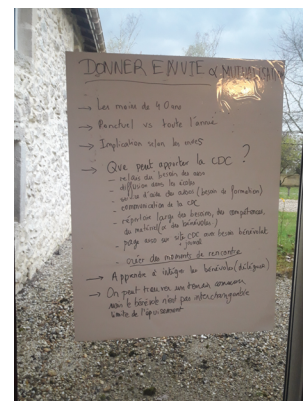 DONNER ENVIE & MUTUALISATION
→ Les moins de 40 ans
→ Ponctuel vs toute l'année
→ Implication selon les
→ Que peut apporter la CDC ?
- relais du besoin des
- diffusion dans les écoles
- des assos (besoin de formation)
- communication de la CDC
- répertoire large des besoins, des compétences,
du matériel, des bénévoles !
- page sur site CDC avec besoin bénévolat
- créer des moments de rencontre
→ Apprendre à intégrer les bénévoles (déléguer)
→ On peut trouver un terrain commun
mais le bénévole n'est pas interchangeable
limite de l'épuisement